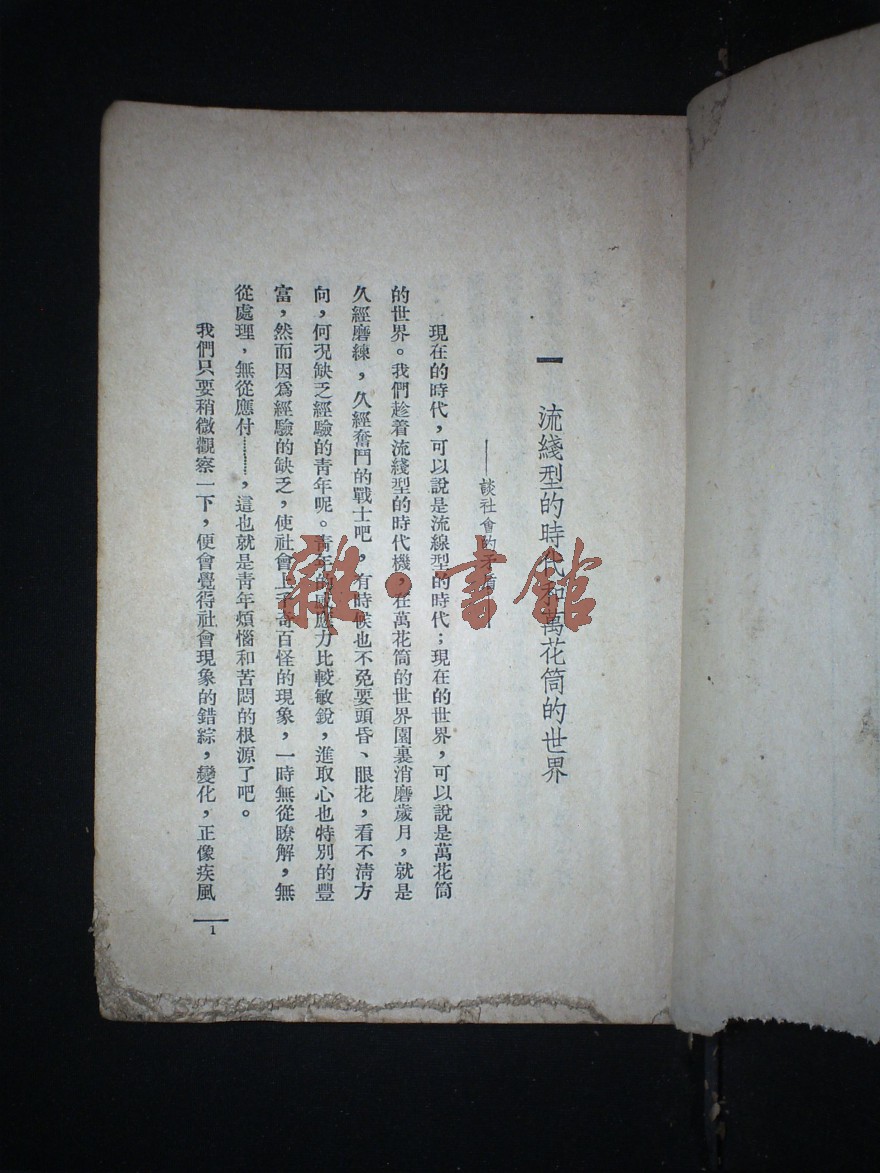 一　流綫型的時代和萬花筒的世界
——談社會的矛盾
現在的時代，可以說是流線型的時代；現在的世界，可以說是萬花筒
的世界。我們趁着流綫型的時代機，在萬花筒的世界園裏消磨歲月，就是
久經磨練，久經奮鬥的戰士吧，有時候也不免要頭昏、眼花，看不清方
向，何況缺乏經驗的青年呢。青年的感應力比較敏銳，進取心也特別的豐
富，然而因爲經驗的缺乏，使社會上千奇百怪的現象，一時無從瞭解，無
從處理，無從應付………，這也就是青年煩惱和苦悶的根源了吧。
我們只要稍微觀察一下，便會覺得社會現象的錯綜，變化，正像疾風
1
雜·書館